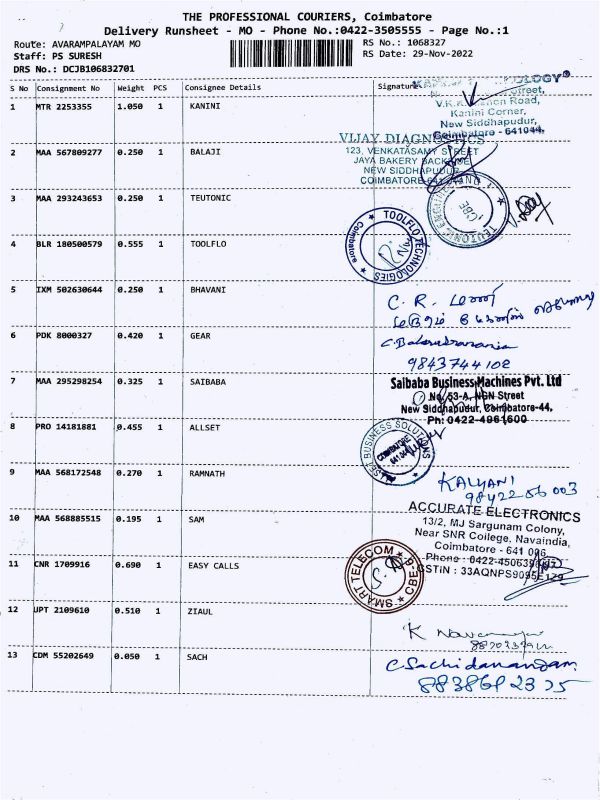 THE PROFESSIONAL COURIERS, Coimbatore
Delivery Runsheet - MO - Phone No.:0422-3505555 - Page No.:1
Route: AVARAMPALAYAM MO
RS No.: 1068327
Staff: PS SURESH
RS Date: 29-Nov-2022
DRS No.: DCJB106832701
S No Consignment No Weight PCS Consignee Details Signature
1 MTR 2253355 1.050 1 KANINI
Road,
Kanini Corner,
New Siddhapudur,
Coimbatore - 641044.
VIJAY DIAGNOSTICS
2 MAA 567809277 0.250 1 BALAJI
123, VENKATASAMY STREET
JAYA BAKERY BACKSIDE
NEW SIDDHAPUDUR
COIMBATORE
3 MAA 293243653 0.250 1 TEUTONIC
TEUTONIC
CBE
4 BLR 180500579 0.555 1 TOOLFLO
TOOLFLO TECHNOLOGIES
Coimbatore
5 IXM 502630644 0.250 1 BHAVANI
C. R.
6 PDK 8000327 0.420 1 GEAR
9843744102
7 MAA 295298254 0.325 1 SAIBABA
Saibaba Business Machines Pvt. Ltd
No. 53-A, NGN Street
New Siddhapudur, Coimbatore-44,
Ph: 0422-4961600
8 PRO 14181881 0.455 1 ALLSET
ALLSET BUSINESS SOLUTIONS
COIMBATORE
9 MAA 568172548 0.270 1 RAMNATH
KALYANI
10 MAA 568885515 0.195 1 SAM
ACCURATE ELECTRONICS
13/2, MJ Sargunam Colony,
Near SNR College, Navaindia,
Coimbatore - 641 006
Phone : 0422-4506
GSTiN : 33AQNPS9095E1Z9
11 CNR 1709916 0.690 1 EASY CALLS
SMART TELECOM
CBE
12 JPT 2109610 0.510 1 ZIAUL
K
13 CDM 55202649 0.050 1 SACH
C Sachidanandam